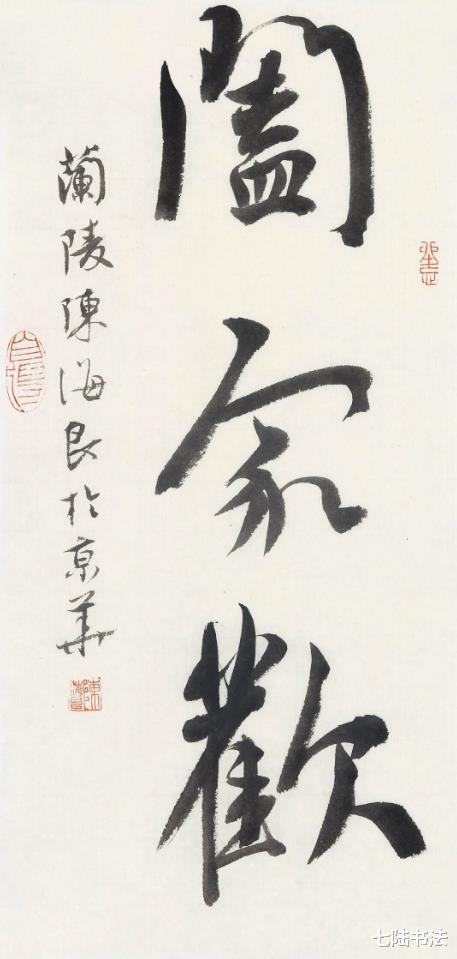 闔家歡
蘭陵陳海良於京華
七陆书法